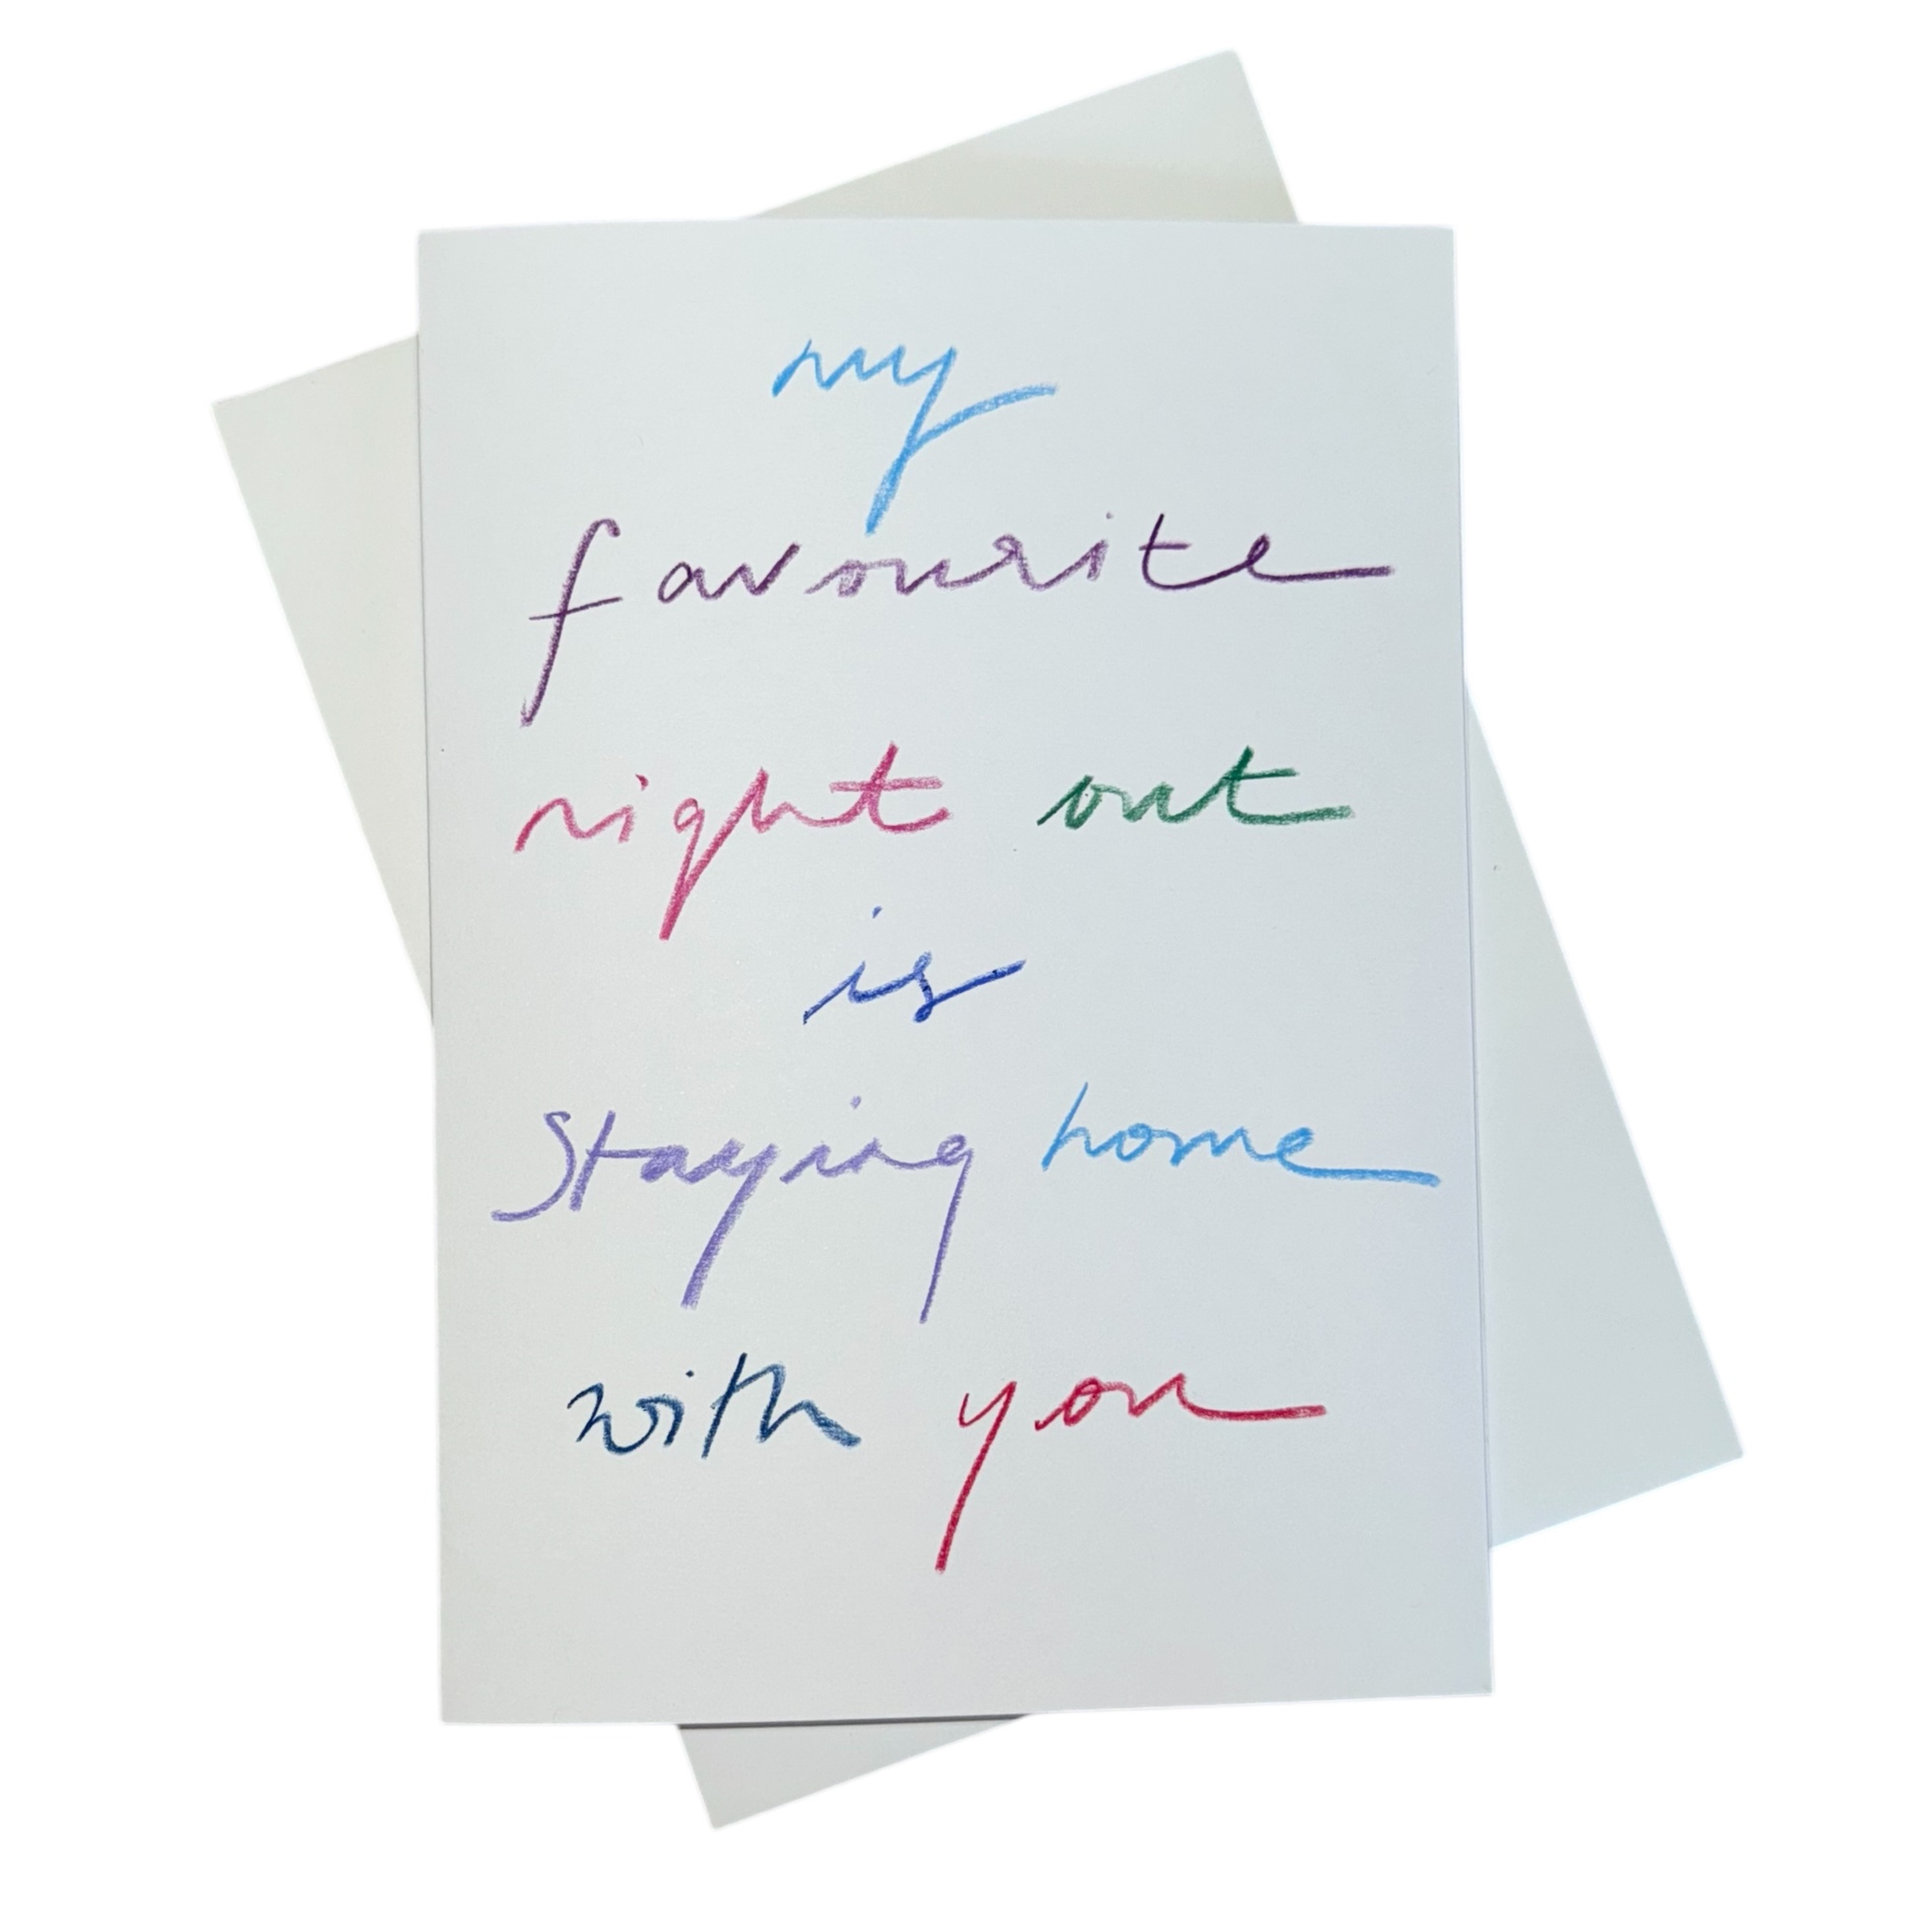 my
favourite
right out
is
Staying home
with you